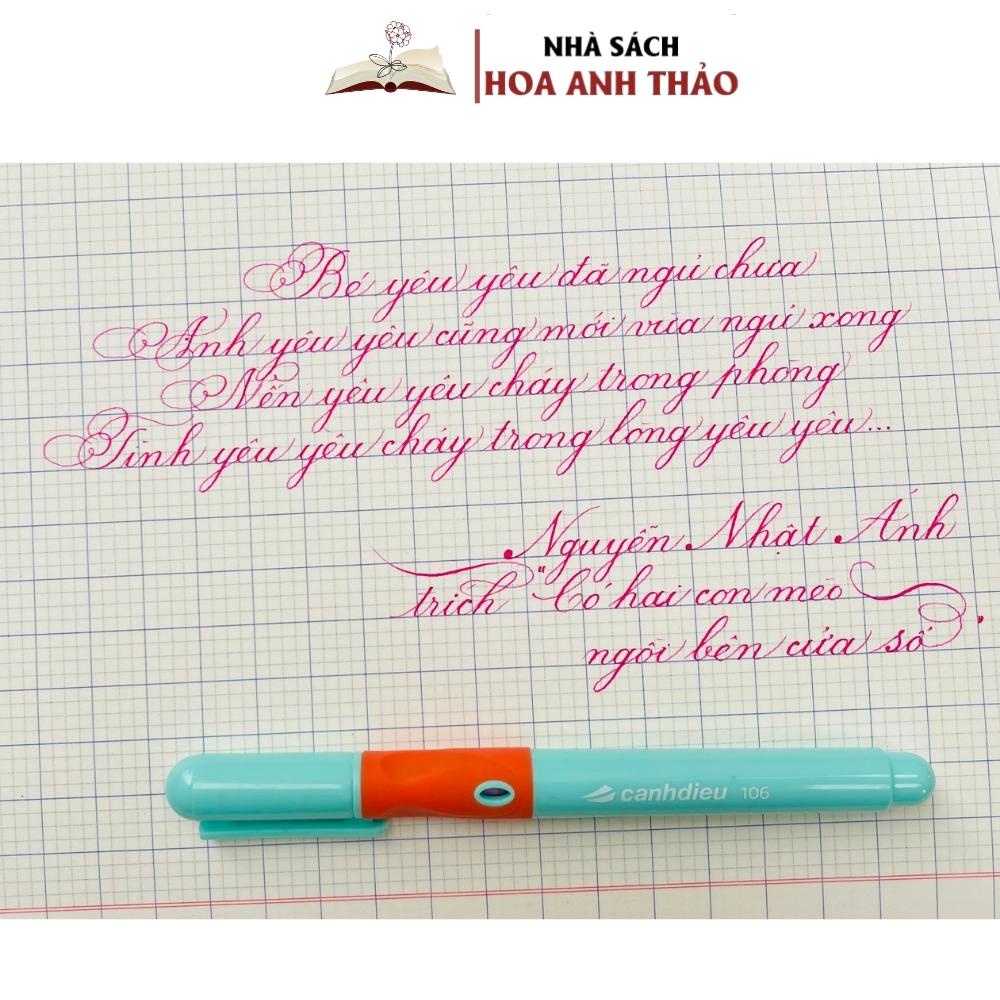 NHÀ SÁCH
HOA ANH THẢO
Bé yêu yêu đã ngủ chưa
Anh yêu yêu cũng mới vừa ngủ xong
Nến yêu yêu cháy trong phòng
Tình yêu yêu cháy trong lòng yêu yêu...
Nguyễn Nhật Ánh
trích "Có hai con mèo
ngồi bên cửa sổ".
canhdieu 106